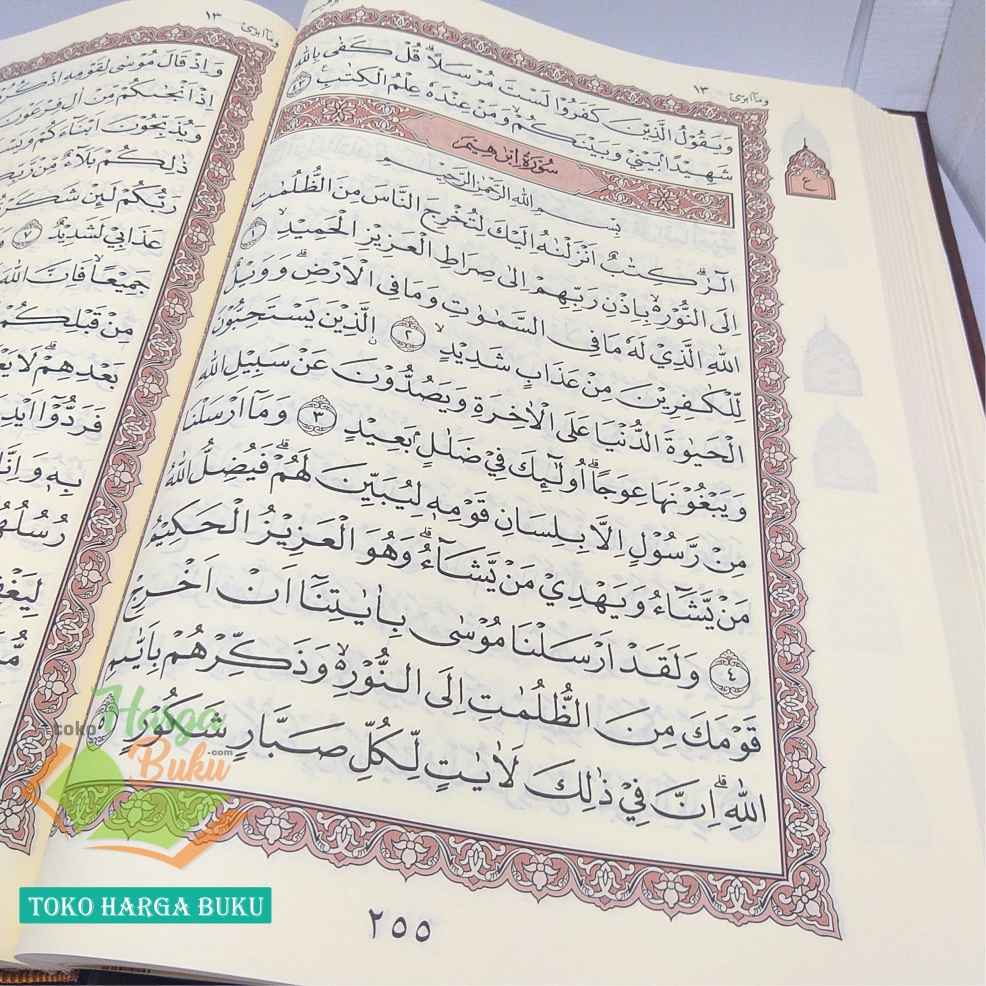 وما ابرئ ١٣
وَيَقُوْلُ الَّذِيْنَ كَفَرُوْا لَسْتَ مُرْسَلًاۗ قُلْ كَفٰى بِاللّٰهِ
شَهِيْدًاۢ بَيْنِيْ وَبَيْنَكُمْۙ وَمَنْ عِنْدَهٗ عِلْمُ الْكِتٰبِ
ع
سُوْرَةُ اِبْرٰهِيْمَ
بِسْمِ اللّٰهِ الرَّحْمٰنِ الرَّحِيْمِ
الۤرٰۗ كِتٰبٌ اَنْزَلْنٰهُ اِلَيْكَ لِتُخْرِجَ النَّاسَ مِنَ الظُّلُمٰتِ
اِلَى النُّوْرِۙ بِاِذْنِ رَبِّهِمْ اِلٰى صِرَاطِ الْعَزِيْزِ الْحَمِيْدِۙ ١
اللّٰهِ الَّذِيْ لَهٗ مَا فِى السَّمٰوٰتِ وَمَا فِى الْاَرْضِۗ وَوَيْلٌ
لِّلْكٰفِرِيْنَ مِنْ عَذَابٍ شَدِيْدٍۙ ٢ ۨالَّذِيْنَ يَسْتَحِبُّوْنَ
الْحَيٰوةَ الدُّنْيَا عَلَى الْاٰخِرَةِ وَيَصُدُّوْنَ عَنْ سَبِيْلِ اللّٰهِ
وَيَبْغُوْنَهَا عِوَجًاۗ اُولٰۤىِٕكَ فِيْ ضَلٰلٍۢ بَعِيْدٍ ٣ وَمَآ اَرْسَلْنَا
مِنْ رَّسُوْلٍ اِلَّا بِلِسَانِ قَوْمِهٖ لِيُبَيِّنَ لَهُمْۗ فَيُضِلُّ اللّٰهُ
مَنْ يَّشَاۤءُ وَيَهْدِيْ مَنْ يَّشَاۤءُۗ وَهُوَ الْعَزِيْزُ الْحَكِيْمُ
٤ وَلَقَدْ اَرْسَلْنَا مُوْسٰى بِاٰيٰتِنَآ اَنْ اَخْرِجْ
قَوْمَكَ مِنَ الظُّلُمٰتِ اِلَى النُّوْرِۙ وَذَكِّرْهُمْ بِاَيّٰىمِ
اللّٰهِۗ اِنَّ فِيْ ذٰلِكَ لَاٰيٰتٍ لِّكُلِّ صَبَّارٍ شَكُوْرٍ
٢٥٥
وما ابرئ ١٣
وَاِذْ قَالَ مُوْسٰى لِقَوْمِهِ اذْكُرُوْا
اِذْ اَنْجٰىكُمْ مِّنْ اٰلِ فِرْعَوْنَ
وَيُذَبِّحُوْنَ اَبْنَاۤءَكُمْ
ذٰلِكُمْ بَلَاۤءٌ مِّنْ رَّبِّكُمْ
رَبُّكُمْ لَىِٕنْ شَكَرْتُمْ
عَذَابِيْ لَشَدِيْدٌ ٧
جَمِيْعًاۙ فَاِنَّ اللّٰهَ
مِنْ قَبْلِكُمْ
بَعْدِهِمْۗ لَا
فَرَدُّوْٓا
بِهٖ وَاِنَّا
رُسُلُهُمْ
toko Harga
Buku.com
TOKO HARGA BUKU